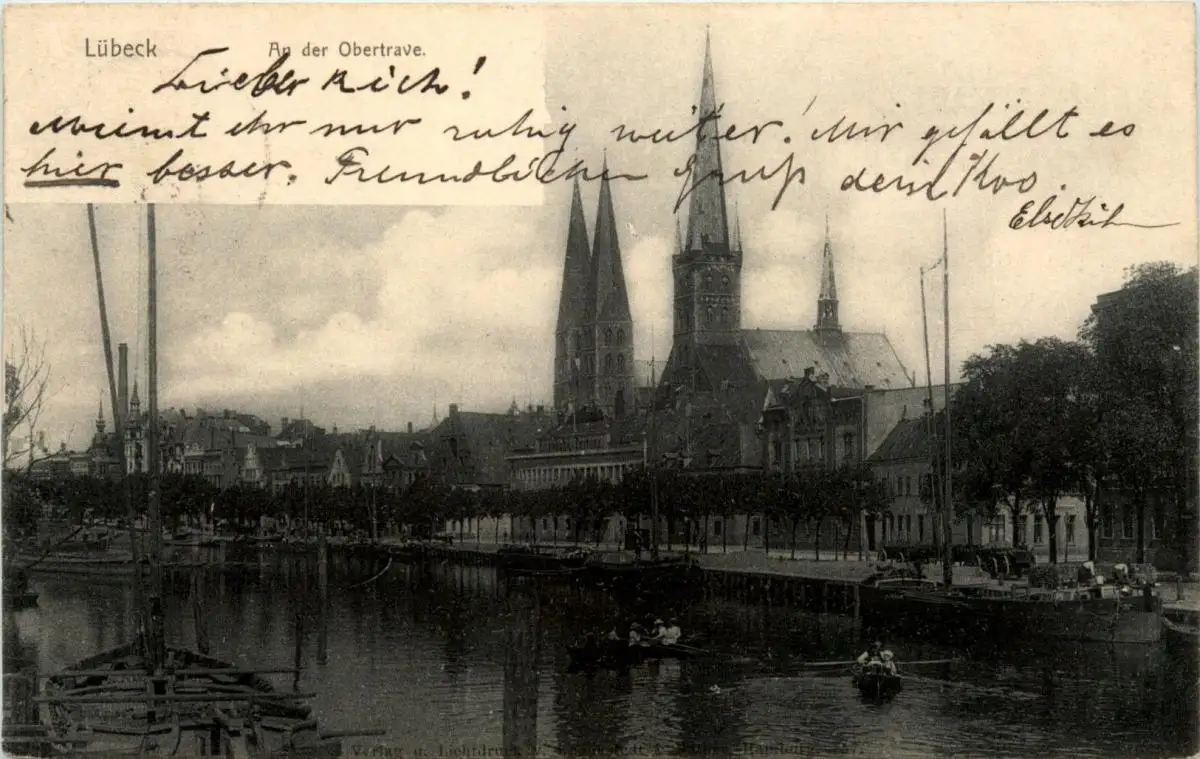 Lübeck An der Obertrave.
Lieber Rich!
Meint ihr nur ruhig weiter! Mir gefällt es
hier besser. Freundlichen Gruß dein
Verlag u. Lichtdruck Hamburg